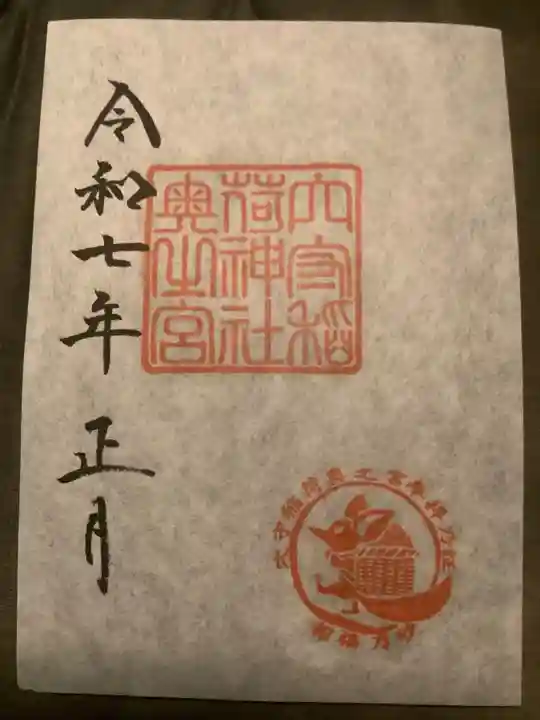 穴守稲
荷神社
奥之宮
令和七年 正月
穴守稲荷奥之宮